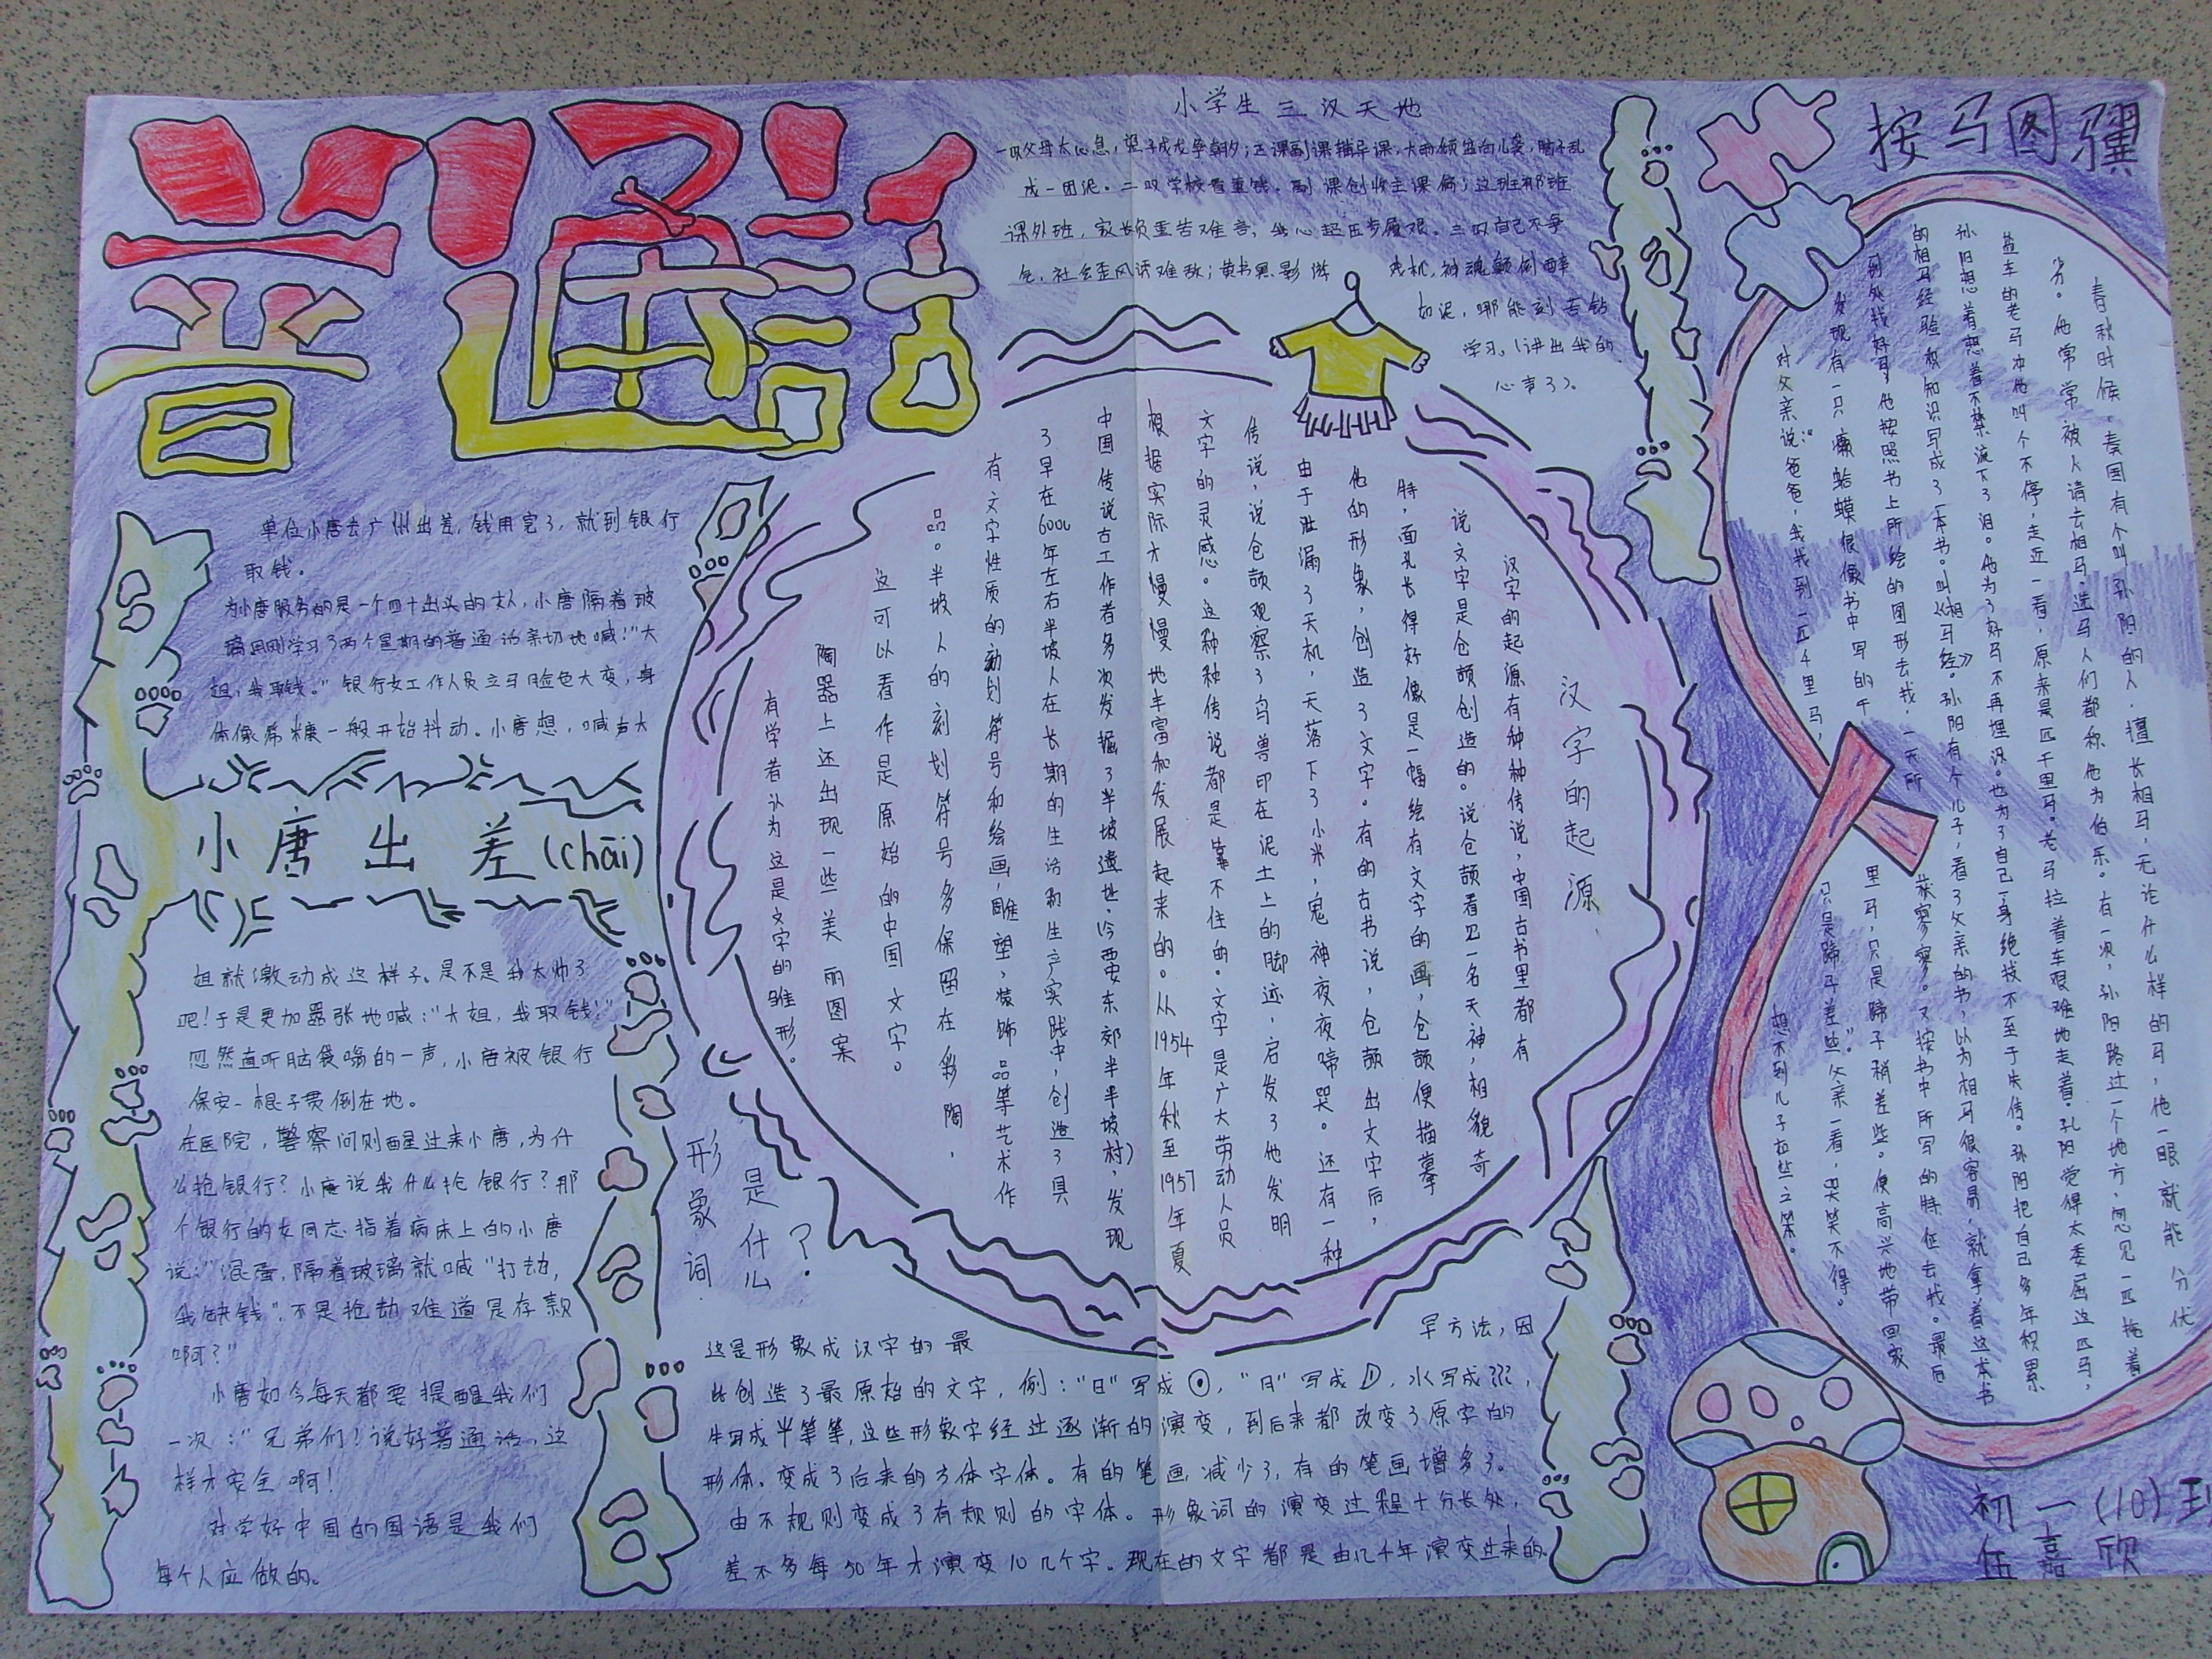 普通话
单位小唐去广州出差,钱用完了,就到银行
取钱。
为小唐服务的是一个四十出头的女人,小唐隔着玻
璃用刚学习了两个星期的普通话亲切地喊:"大
姐,我取钱。"银行女工作人员立马脸色大变,身
体像筛糠一般开始抖动。小唐想,喊声大
小唐出差(chāi)
姐就激动成这样子。是不是我太帅了
吧!于是更加嚣张地喊:"大姐,我取钱!"
忽然直听脑袋嗡的一声,小唐被银行
保安一棍子贯倒在地。
在医院,警察问刚醒过来小唐,为什
么抢银行?小唐说我什么抢银行?那
个银行的女同志指着病床上的小唐
说:"混蛋,隔着玻璃就喊"打劫,
我缺钱".不是抢劫难道是存款
啊?"
小唐如今每天都要提醒我们
一次:"兄弟们!说好普通话,这
样才安全啊!
对学好中国的国语是我们
每个人应做的。
小学生三汉天地
一叹父母太心急,望子成龙争朝夕;正课副课辅导课,大雨倾盆向儿袭,脑不乱
成一团泥。二叹学校看重钱。副课创收主课偏;这班那班
课外班,家长负重苦难言;我心超压步履艰。三叹自己不争
气,社会歪风诱难敌;黄书黑影游戏机,神魂颠倒醉
如泥,哪能刻苦钻
学习。(讲出我的
心声了)。
汉字的起源
汉字的起源有种种传说,中国古书里都有
说文字是仓颉创造的。说仓颉看见一名天神,相貌奇
特,面孔长得好像是一幅绘有文字的画,仓颉便描摹
他的形象,创造了文字。有的古书说,仓颉出文字后,
由于泄漏了天机,天落下了小米,鬼神夜夜啼哭。还有一种
传说,说仓颉观察了鸟兽印在泥土上的脚迹,启发了他发明
文字的灵感。这种种传说都是靠不住的。文字是广大劳动人员
根据实际才慢慢地丰富和发展起来的。从1954年秋至1957年夏
中国传说古工作者多次发掘了半坡遗址,(今西安东郊半半坡村),发现
了早在6000年左右半坡人在长期的生活和生产实践中,创造了具
有文字性质的刻划符号和绘画,雕塑,装饰品等艺术作
品。半坡人的刻划符号多保留在彩陶,
这可以看作是原始的中国文字。
陶器上还出现一些美丽图案
有学者认为这是文字的雏形。
形象词
是什么
?
这是形象成汉字的最早方法,因
此创造了最原始的文字,例:"日"写成⊙,"月"写成D,水写成
牛写成半等等,这些形象字经过逐渐的演变,到后来都改变了原字的
形体,变成了后来的方体字体。有的笔画减少了,有的笔画增多了。
由不规则变成了有规则的字体。形象词的演变过程十分长处,
差不多每50年才演变10几个字。现在的文字都是由几千年演变过来的。
按马图骥
春秋时候,秦国有个叫孙阳的人,擅长相马,无论什么样的马,他一眼就能分优
劣。他常常被人请去相马、选马人们都称他为伯乐。有一次,孙阳路过一个地方,忽见一匹拖着
盐车的老马冲他叫个不停,走近一看,原来是匹千里马。老马拉着车艰难地走着。孔阳觉得太委屈这匹马,
孙阳想着想着不禁流下了泪。他为了好马不再埋没。也为了自己一身绝技不至于失传。孙阳把自己多年积累
的相马经验和知识写成了一本书。叫《相马经》。孙阳有个儿子,看了父亲的书,以为相马很容易,就拿着这本书
到处找好马,他按照书上所绘的图形去找,一天所获寥寥。又按书中所写的特征去找。最后
发现有一只癞蛤蟆很像书中写的千里马,只是蹄子稍差些。便高兴地带回家
对父亲说:"爸爸,我找到一匹千里马,只是蹄子差些。"父亲一看,哭笑不得。
想不到儿子在些之笨。
初一(10)班
伍嘉欣